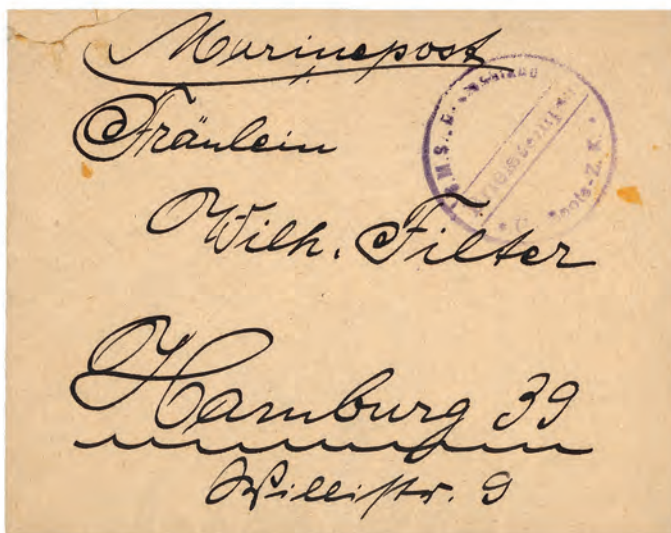 Marinepost
Fräulein
Wilh. Filter
Hamburg 39
Willistr. 9
S.M.S.
Briefstempel